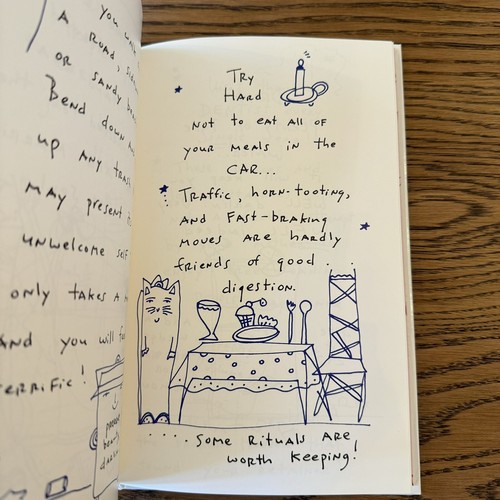 You
A ROAD,
OR SANDY
Bend down
up ANY
MAY present
UNWELCOME self
only takes A
AND you will
TERRIFIC!
Try
HARD
NOT to eat ALL OF
your MEALS in the
CAR...
TRAFFIC, HORN-TOOTING,
AND FAST-BRAKING
MOVES ARE HARDLY
friends of good . . .
digestion.
. . . . . SOME RITUALS ARE
WORTH KEEPING!